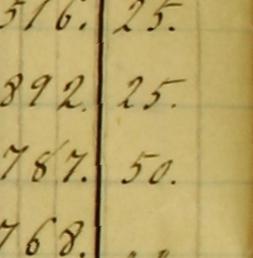 516. 25.
892. 25.
787. 50.
768.